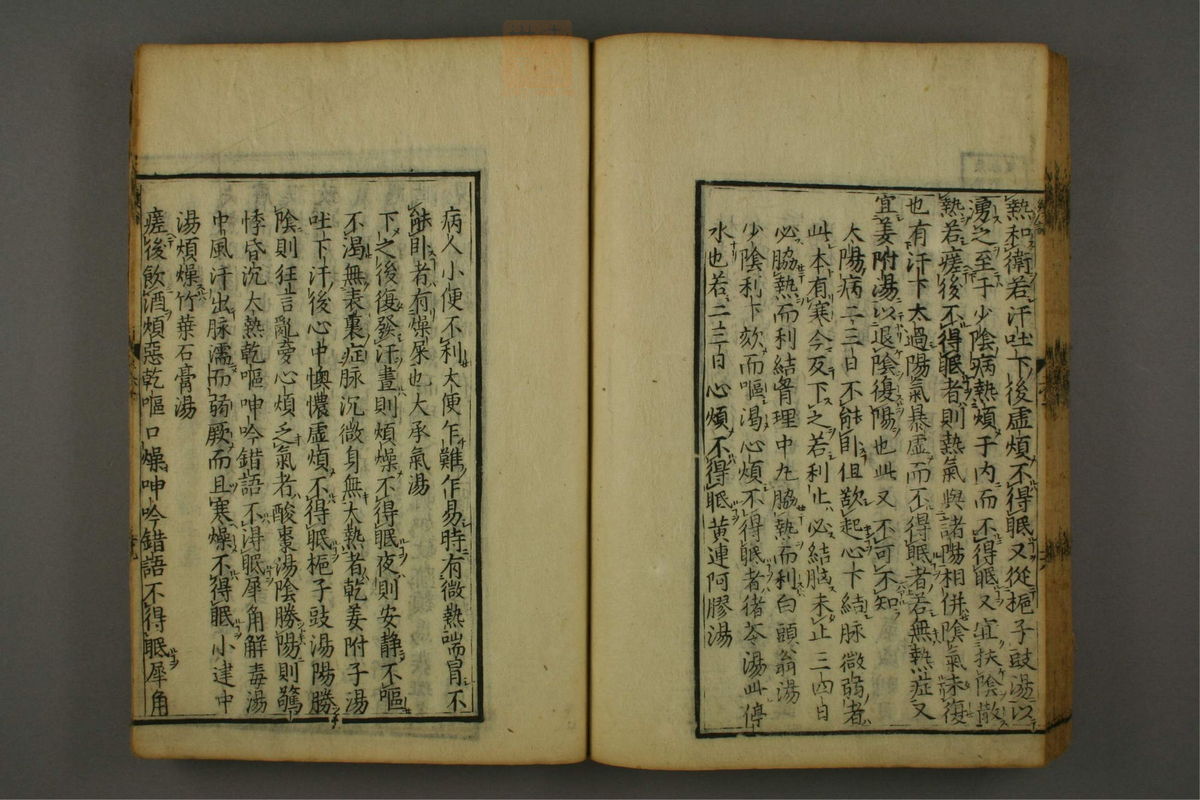 熱和衛若汗吐下後虚煩不得眠又從梔子豉湯以
湧之至于少陰病熱煩于内而不得眠又宜扶陰散
熱若瘥後不得眠者則熱氣與諸陽相併陰氣未復
也有汗下太過陽氣暴虚而不得眠者若無熱症又
宜姜附湯以退陰復陽也此又不可不知
太陽病二三日不能卧但欲起心下結脉微弱者
此本有寒今反下之若利止必結胸未止三四日
必脇熱而利結胷理中丸脇熱而利白頭翁湯
少陰利下欬而嘔渴心煩不得眠者猪苓湯此停
水也若二三日心煩不得眠黄連阿膠湯
病人小便不利大便乍難乍易時有微熱喘冒不
能卧者有燥屎也大承氣湯
下之後復發汗晝則煩燥不得眠夜則安静不嘔
不渴無表裏症脉沉微身無大熱者乾姜附子湯
吐下汗後心中懊憹虚煩不得眠梔子豉湯陽勝
陰則狂言亂夢心煩乏氣者酸棗湯陰勝陽則驚
悸昏沉大熱乾嘔呻吟錯語不得眠犀角解毒湯
中風汗出脉濡而弱厥而且寒燥不得眠小建中
湯煩燥竹葉石膏湯
瘥後飲酒煩惡乾嘔口燥呻吟錯語不得眠犀角